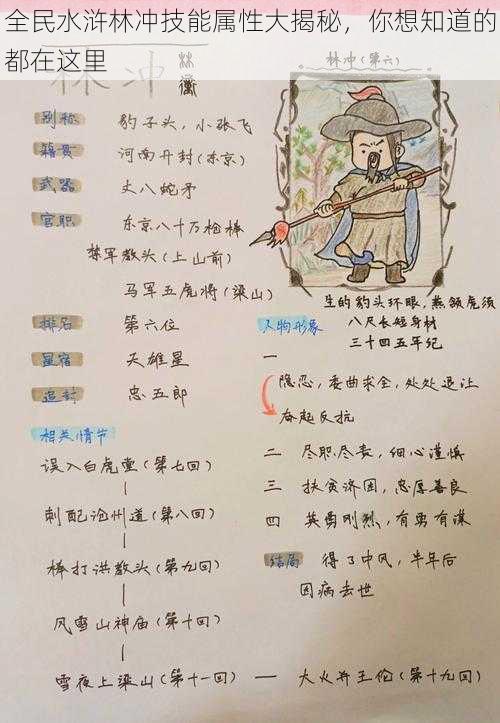 全民水浒林冲技能属性大揭秘，你想知道的
都在这里
林冲
林冲(第六)
别称 豹子头，小张飞
籍贯 河南开封(东京)
武器 丈八蛇矛
官职 东京八十万枪棒
禁军教头(上山前)
马军五虎将(梁山)
排名 第六位
星宿 天雄星
追封 忠五郎
相关情节
误入白虎堂(第七回)
刺配沧州道(第八回)
棒打洪教头(第九回)
风雪山神庙(第十回)
雪夜上梁山(第十一回) — 大火并王伦(第十九回)
生的豹头环眼，燕颔虎须
八尺长短身材
三十四五年纪
人物形象
一
隐忍，委曲求全，处处退让
奋起反抗
二 尽职尽责，细心谨慎
三 扶贫济困，忠厚善良
四 英勇刚烈，有勇有谋
结局 得了中风，半年后
因病去世